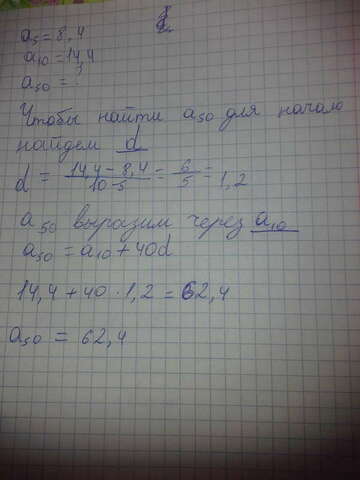 a₅ = 8,4
a₁₀ = 14,4
a₅₀ = ?
Чтобы найти a₅₀ для начало
найдем d
d = (14,4 - 8,4)/(10 - 5) = 6/5 = 1,2
a₅₀ выразим через a₁₀
a₅₀ = a₁₀ + 40d
14,4 + 40 · 1,2 = 62,4
a₅₀ = 62,4